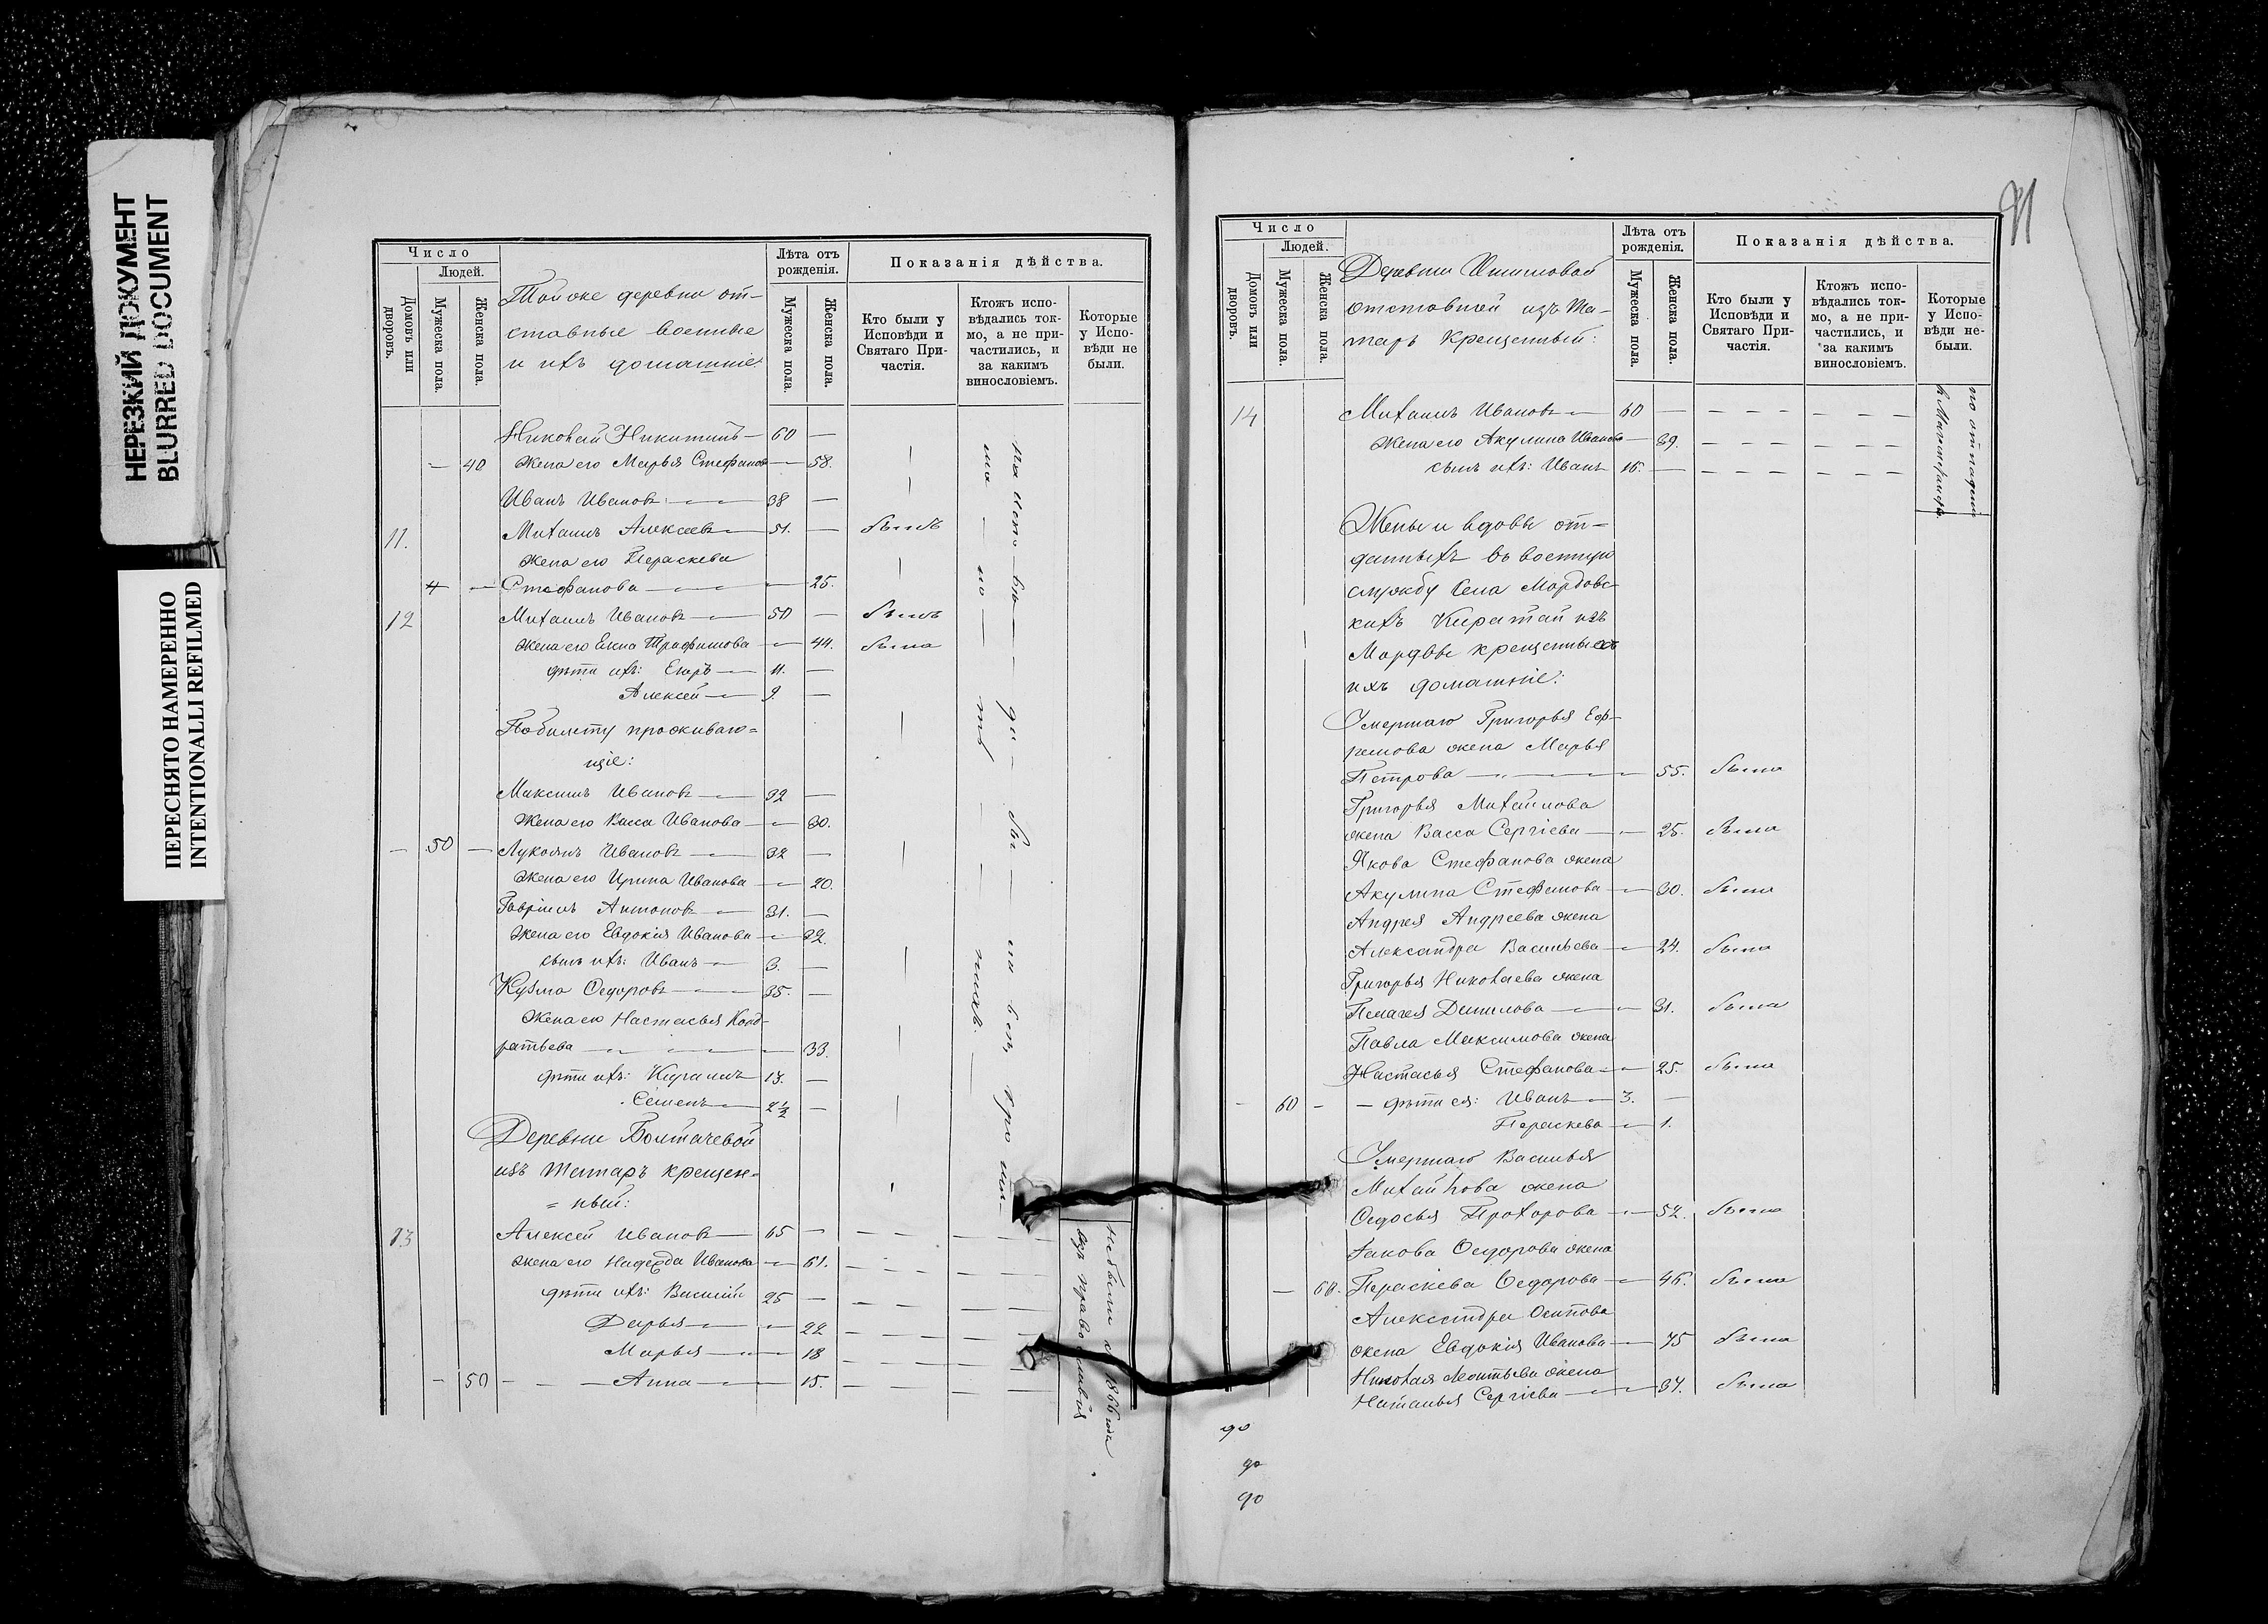 НЕРЕЗКИЙ ДОКУМЕНТ
BLURRED DOCUMENT
ПЕРЕСНЯТО НАМЕРЕННО
INTENTIONALLI REFILMED
Число
Людей.
Домовъ или дворовъ.
Мужеска пола.
Женска пола.
Той же деревни от-
ставные военные
и ихъ домашніе:
Лѣта отъ рожденія.
Мужеска пола.
Женска пола.
Показанія дѣйства.
Кто были у Исповѣди и Святаго При-частія.
Ктожъ испо-вѣдались ток-мо, а не при-частились, и за какимъ винословіемъ.
Которые у Испо-вѣди не были.
Николай Никитинъ — 60 —
— 40 Жена его Марья Стефанова — 58.
Иванъ Ивановъ — 38 —
11. Михаилъ Алексеевъ — 51. — былъ
Жена его Параскева
4 — Стефанова — 25.
12 Михаилъ Ивановъ — 50 — былъ
Жена его Елена Трофимова — 44. была
дѣти ихъ: Егоръ — 11. —
Алексей — 9. —
По билету проживаю=
щіе:
Максимъ Ивановъ — 32 —
Жена его Васса Иванова — 30.
— 50 — Лукоянъ Ивановъ — 32 —
Жена его Ирина Иванова — 20.
Гавріилъ Антоновъ — 31. —
Жена его Евдокія Иванова — 32.
сынъ ихъ: Иванъ — 3. —
Кузма Ѳедоровъ — 35. —
Жена его Настасья Конд-
ратьева — 33.
дѣти ихъ: Кирилъ 13. —
Семенъ — 2 ½ —
Деревни Болтачевой
изъ Татаръ крещен=
= ный:
13 Алексей Ивановъ — 65 —
жена его Надежда Иванова — 61.
дѣти ихъ: Василій 25 —
Дарья — 22
Марья — 18
— 50 — Анна — 15.
Не были съ 1866 года
православія
Число
Людей.
Домовъ или дворовъ.
Мужеска пола.
Женска пола.
Деревни
отставной изъ Та-
таръ крещенный:
Лѣта отъ рожденія.
Мужеска пола.
Женска пола.
Показанія дѣйства.
Кто были у Исповѣди и Святаго При-частія.
Ктожъ испо-вѣдались ток-мо, а не при-частились, и за какимъ винословіемъ.
Которые у Испо-вѣди не-были.
14 Михаилъ Ивановъ — 60 —
Жена его Акулина Иванова — 39.
сынъ ихъ: Иванъ 16. —
по отпаденію
въ
Жены и вдовы от=
данныхъ въ военную
службу Села Мордовс-
кихъ Каратай изъ
Мордвы крещенныхъ
ихъ домашніе:
Умершаго Григорья Еф-
ремова жена Марья
Петрова — 55. была
Григорья Михайлова
жена Васса Сергіева — 25. была
Якова Стефанова жена
Акулина Стефанова — 30. была
Андрея Андреева жена
Александра Васильева — 24. была
Григорья Николаева жена
Пелагея Данилова — 31. была
Павла Максимова жена
Настасья Стефанова — 25. была
— 60 — — дѣти ея: Иванъ — 3. —
Параскева — 1.
Умершаго Василья
Михайлова жена
Ѳедосья Прохорова — 52. была
Іакова Ѳедорова жена
— 60. Параскева Ѳедорова — 46. была
Александра Осипова
жена Евдокія Иванова — 45 была
Николая Леонтьева жена
Наталья Сергіева — 34. была
до
до
до